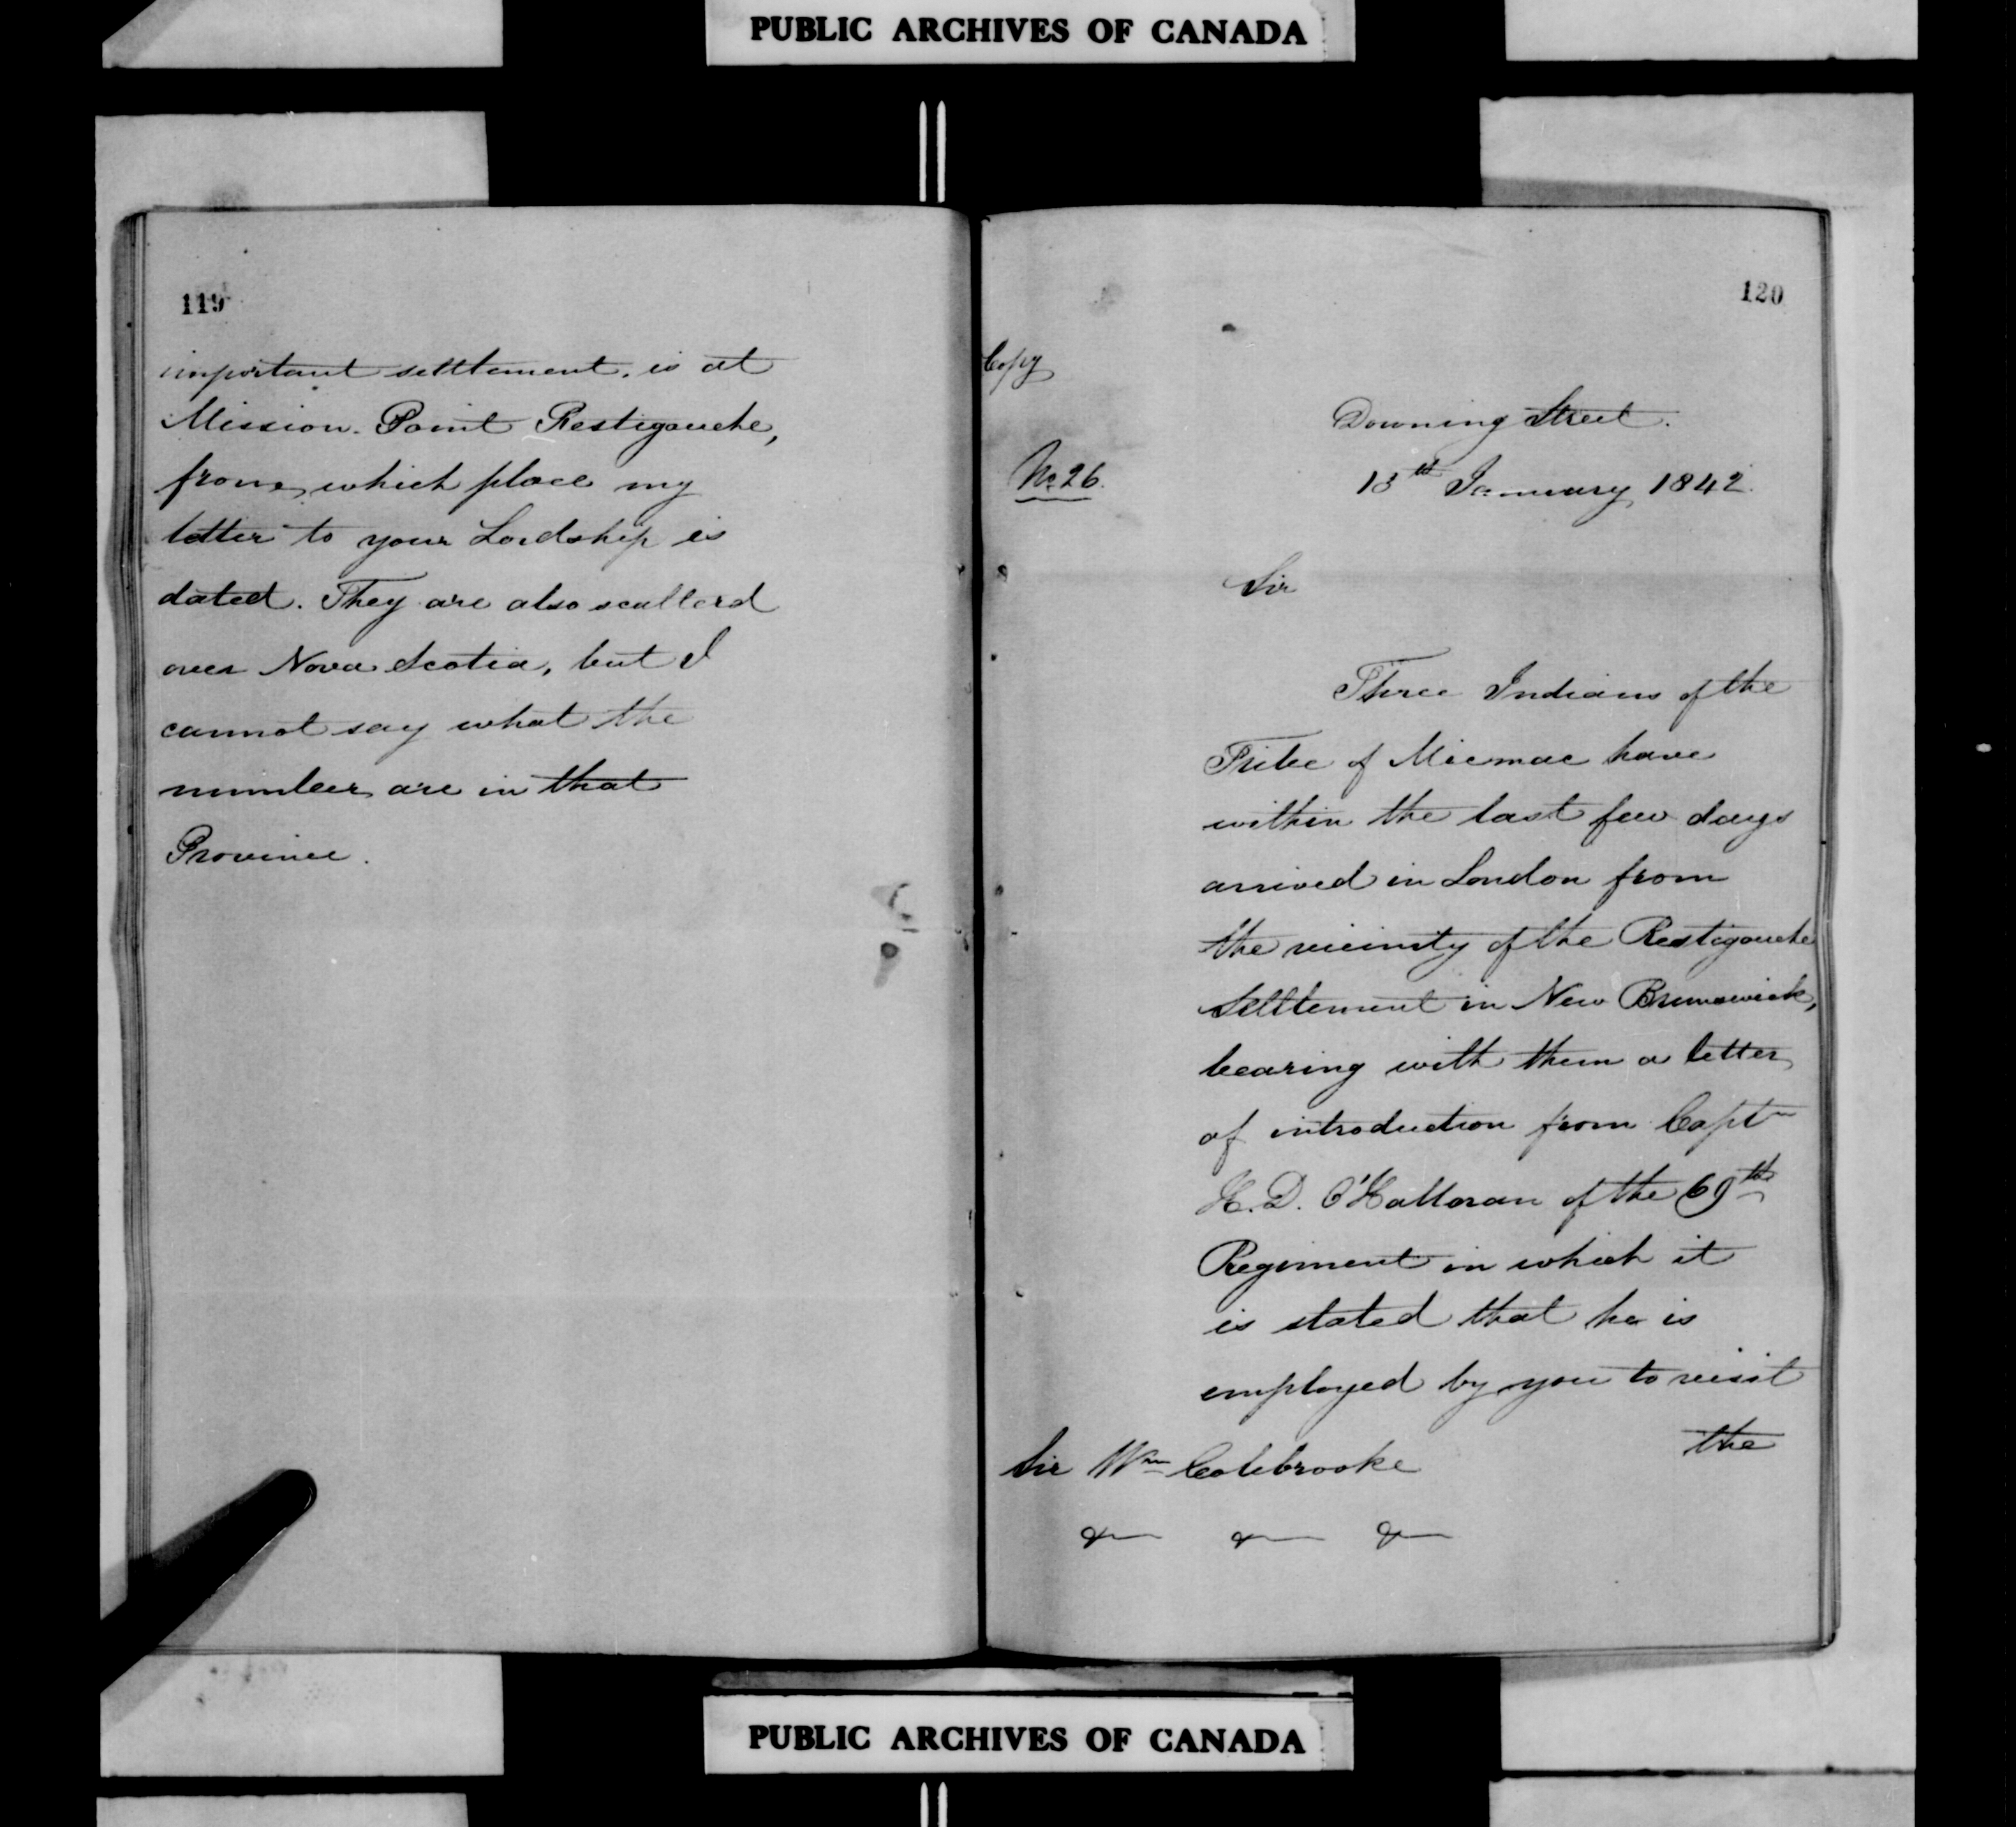 PUBLIC ARCHIVES OF CANADA
119
important settlement, is at
Mission Point Restigouche,
from which place my
letter to your Lordship is
dated. They are also scattered
over Nova Scotia, but I
cannot say what the
number are in that
Province.
120
Copy
Downing Street.
No 26.
13th January 1842.
Sir
Three Indians of the
Tribe of Micmac have
within the last few days
arrived in London from
the vicinity of the Restigouche
Settlement in New Brunswick,
bearing with them a letter
of introduction from Captn
H. D. O'Halloran of the 69th
Regiment in which it
is stated that he is
employed by you to visit
the
Sir Wm Colebrooke
& & &
PUBLIC ARCHIVES OF CANADA